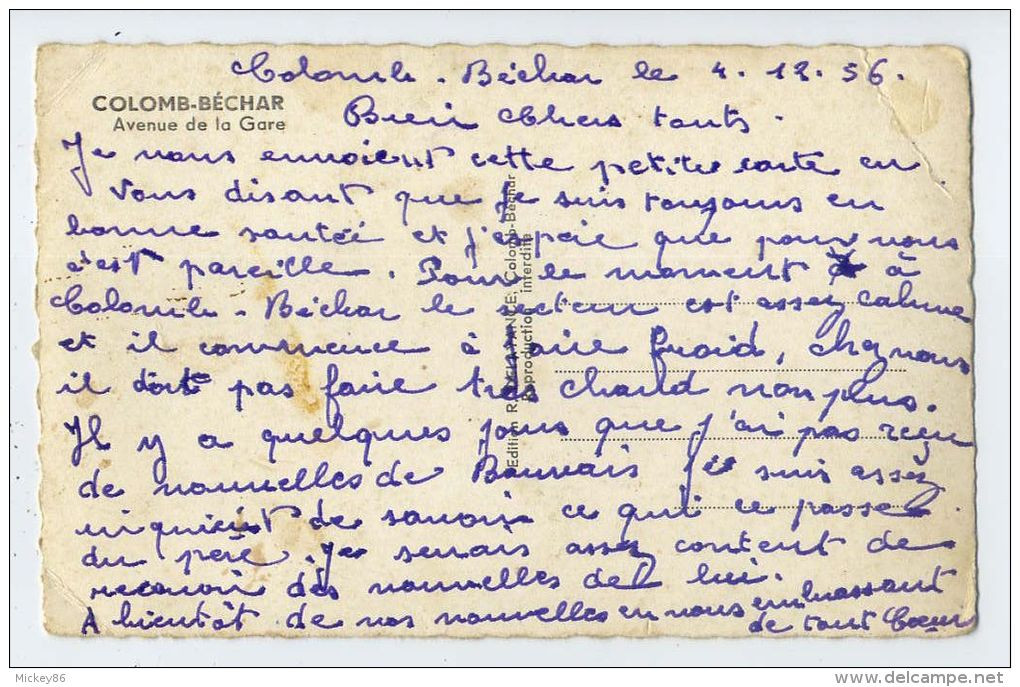 Colomb-Béchar le 4.12.56.
COLOMB-BÉCHAR
Avenue de la Gare
Bien Chers touts.
Je vous envoient cette petite carte en
vous disant que je suis toujours en
bonne santée et j'espere que pour vous
c'est pareille. Pour le moment à
Colomb-Béchar le secteur est assez calme
et il commence à faire froid, chez vous
il doit pas faire tres chaud non plus.
Il y a quelques jours que j'ai pas reçu
de nouvelles de Bauvais je suis assez
inquieit de savoir ce qui ce passe
du père. Je serais assez content de
recevoir des nouvelles de lui.
A bientôt de vos nouvelles en vous embrassant
de tout Coeur
Edition Colomb-Béchar
Reproduction interdite
Mickey86
delcampe.net